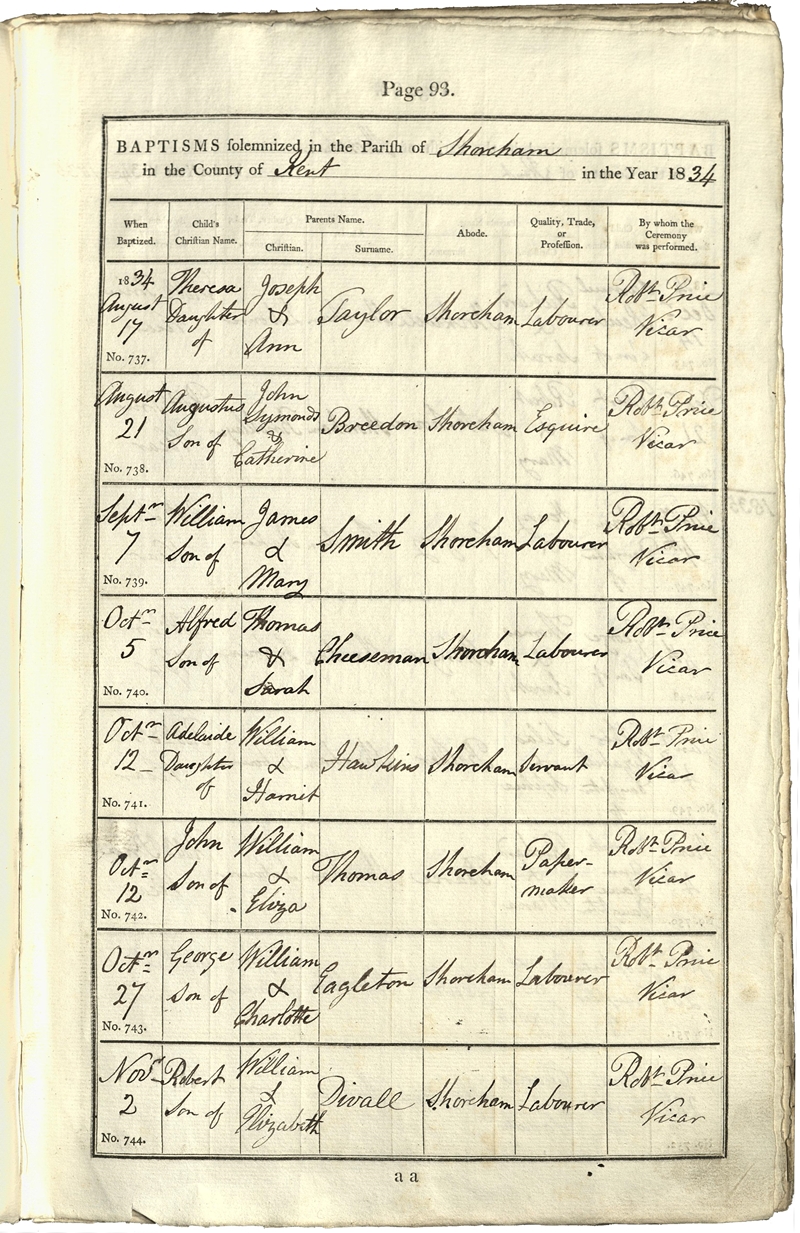 Page 93.
BAPTISMS solemnized in the Parish of Shoreham
in the County of Kent in the Year 1834
When Baptized.
Child's Christian Name.
Parents Name.
Christian.
Surname.
Abode.
Quality, Trade, or Profession.
By whom the Ceremony was performed.
1834 August 17 No. 737.
Theresa Daughter of
Joseph & Ann
Taylor
Shoreham
Labourer
Robt Price Vicar
August 21 No. 738.
Augustus Son of
John Symonds & Catherine
Breedon
Shoreham
Esquire
Robt Price Vicar
Septr 7 No. 739.
William Son of
James & Mary
Smith
Shoreham
Labourer
Robt Price Vicar
Octr 5 No. 740.
Alfred Son of
Thomas & Sarah
Cheeseman
Shoreham
Labourer
Robt Price Vicar
Octr 12 No. 741.
Adelaide Daughter of
William & Harriit
Hawkins
Shoreham
Servant
Robt Price Vicar
Octr 12 No. 742.
John Son of
William & Eliza
Thomas
Shoreham
Paper-maker
Robt Price Vicar
Octr 27 No. 743.
George Son of
William & Charlotte
Eagleton
Shoreham
Labourer
Robt Price Vicar
Novr 2 No. 744.
Robert Son of
William & Elizabeth
Divall
Shoreham
Labourer
Robt Price Vicar
a a